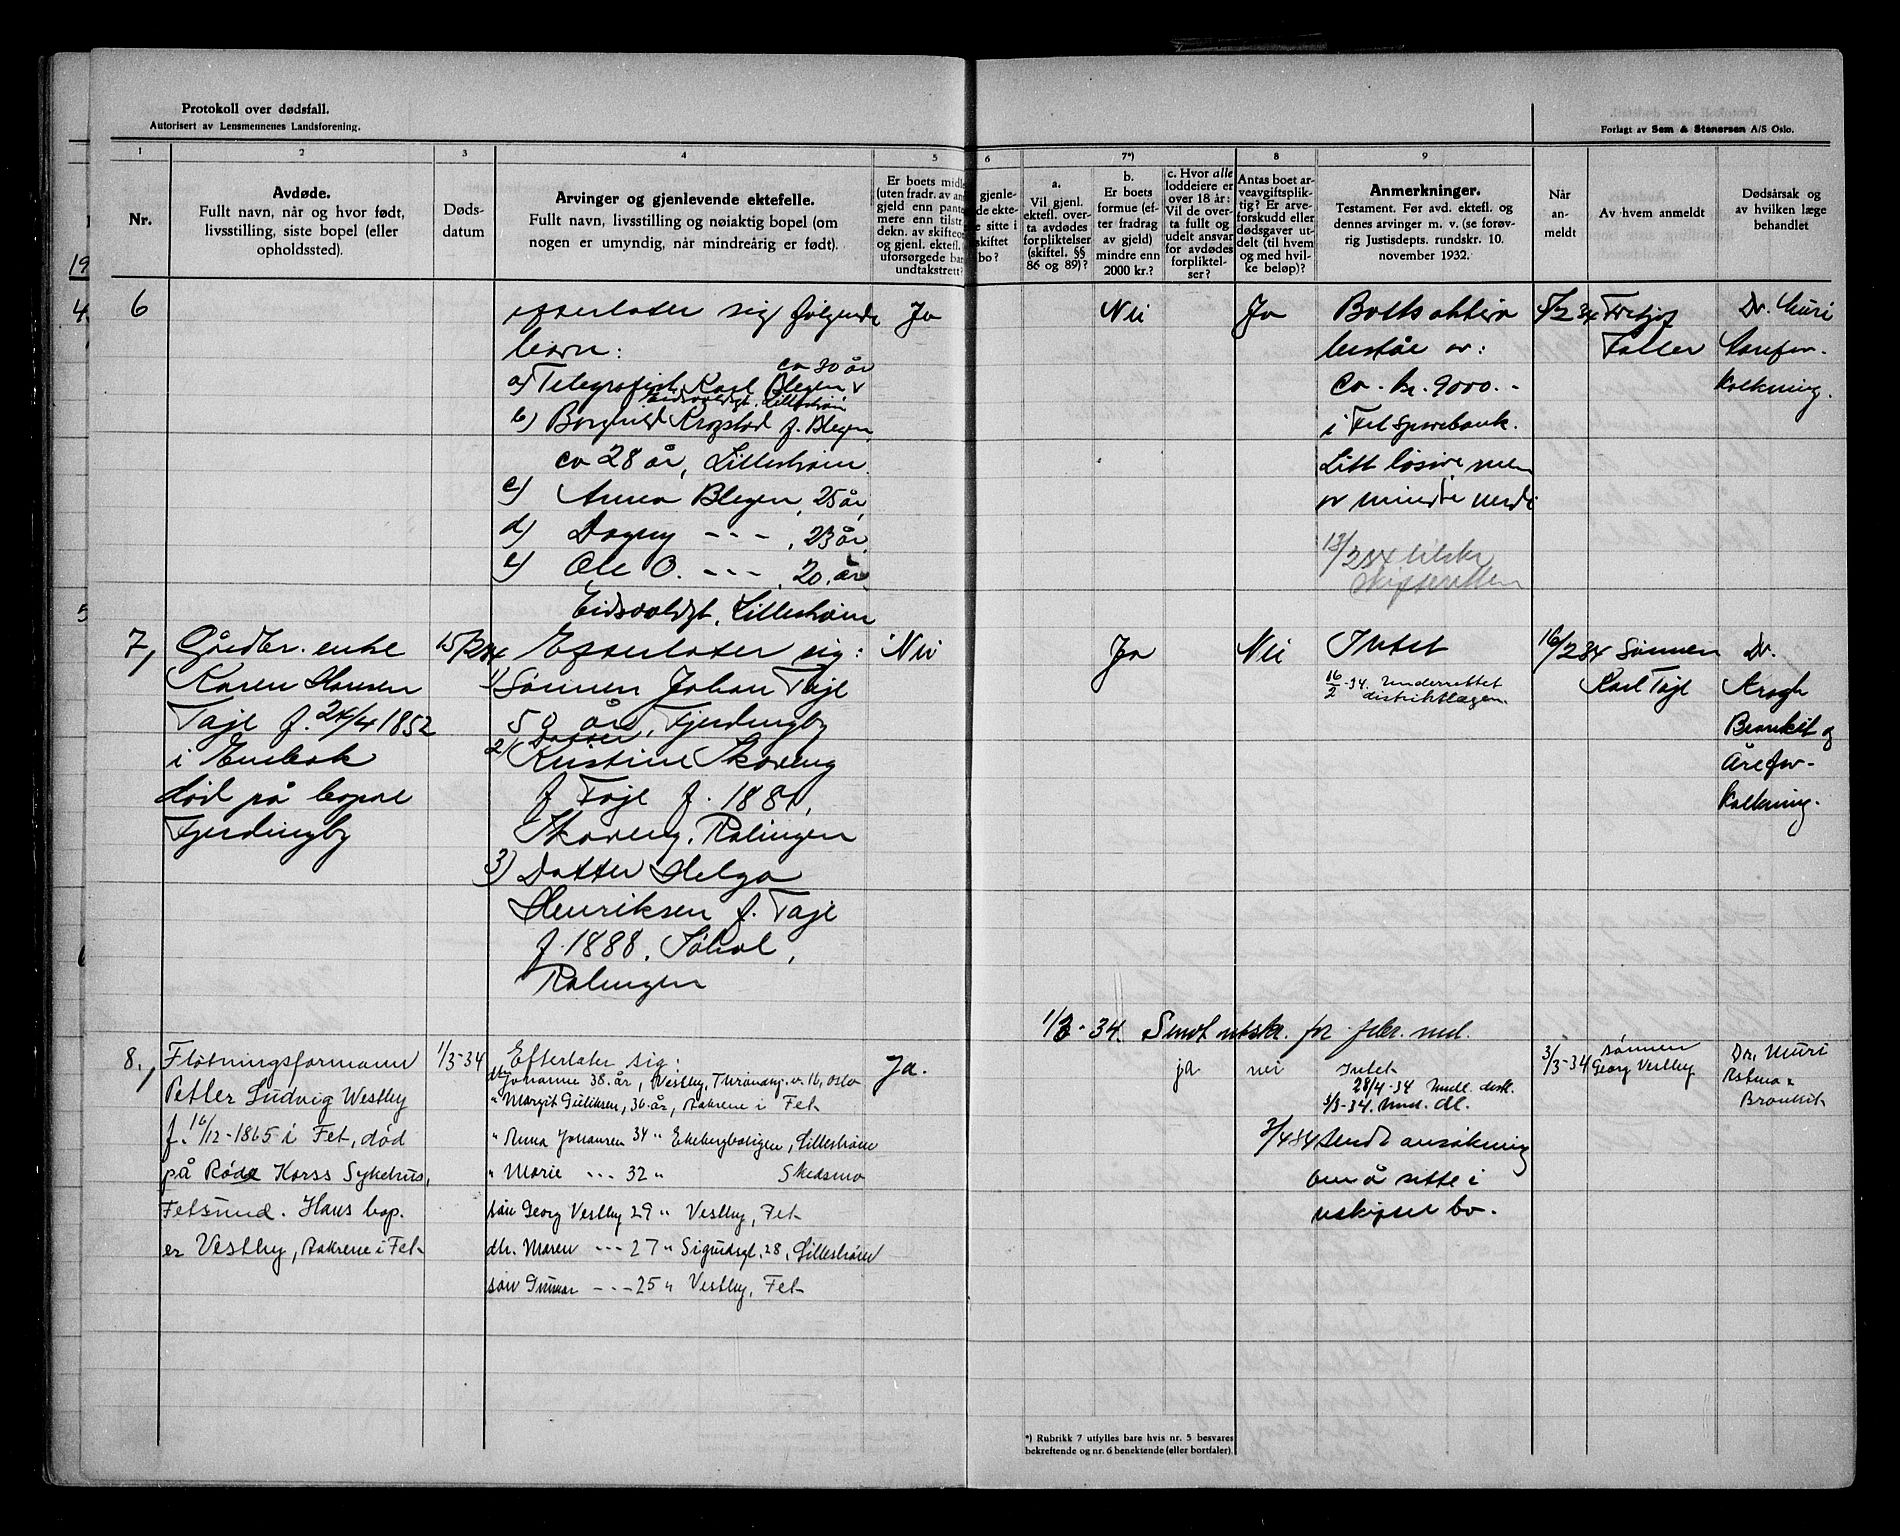 Protokoll over dødsfall.
Autorisert av Lensmennenes Landsforening.
Forlagt av Sem & Stenersen A/S Oslo.
1 2 3 4 5 6 7*) 8 9
Nr.
Avdøde.
Fullt navn, når og hvor født,
livsstilling, siste bopel (eller
opholdssted).
Døds-
datum
Arvinger og gjenlevende ektefelle.
Fullt navn, livsstilling og nøiaktig bopel (om
nogen er umyndig, når mindreårig er født).
Er boets midle
(uten fradr. av an
gjeld enn pante
mere enn tilstr
dekn. av skifteo
og gjenl. ektef.
uforsørgede bar
undtakstrett?
gjenle-
de ekte-
e sitte i
skiftet
bo?
a.
Vil gjenl.
ektefl. over-
ta avdødes
forpliktelser
(skiftel. §§
86 og 89)?
b.
Er boets
formue (ef-
ter fradrag
av gjeld)
mindre enn
2000 kr.?
c. Hvor alle
loddeiere er
over 18 år:
Vil de over-
ta fullt og
udelt ansvar
for avdødes
forpliktel-
ser?
Antas boet ar-
veavgiftsplik-
tig? Er arve-
forskudd eller
dødsgaver ut-
delt (til hvem
og med hvil-
ke beløp)?
Anmerkninger.
Testament. Før avd. ektefl. og
dennes arvinger m. v. (se forøv-
rig Justisdepts. rundskr. 10.
november 1932.
Når
an-
meldt
Av hvem anmeldt
Dødsårsak og
av hvilken læge
behandlet
19
4
5
6
efterlater sig følgende
barn:
ca 30 år
a) Telegrafist Karl Blegen
Eidsvoldgt. Lillestrøm
b) Borghild Krogstad f. Blegen,
ca 28 år, Lillestrøm.
c) Anna Blegen, 25 år,
d) Dagny - - - , 23 år,
e) Ole O. - - - , 20. år
Eidsvoldgt. Lillestrøm
Ja
Nei
Ja
Boets aktiva
består av:
Ca. kr. 9000.-
i Fet Sparebank.
Litt løsøre men
av mindre verdi
13/2 34 tilskr
skifteretten
5/2 34
Fritjof
Faller
Dr. Muri
Aarefor-
kalkning.
7,
Gårdbr. enke
Karen Hansen
Taje f. 24/4 1852
i Enebak
død på bopæl
Fjerdingby
15/2 34
Efterlater sig:
1) Sønnen Johan Taje
50 år, Fjerdingby
2) Datter
Kristine Skoveng
f. Taje f. 1881,
Skoveng, Rælingen
3) Datter Helga
Henriksen f. Taje
f. 1888.
Rælingen
Nei
Ja
Nei
Intet
16/2 -34. Underrettet
distriktlægen
16/2 34
Sønnen
Karl Taje
Dr.
Krogh
Bronkit og
Årefor-
kalkning.
1/3 - 34. Sendt utskr. for febr. md.
8.,
Fløtningsformann
Petter Ludvig Westby
f. 16/12-1865 i Fet, død
på Røde Korss Sykehus,
Fetsund. Hans bop.
er Vestby, Aakrene i Fet
1/3-34
Efterlater sig:
dtr. Johanne 38. år, Vestby, v. 16, Oslo
" Margit Guliksen, 36. år, Aakrene i Fet
" Anna Johansen 34 " Ekebergboligen, Lillestrøm
" Marie - - - 32 " Skedsmo
søn Georg Vestby 29 " Vestby, Fet
dtr. Maren - - - 27 " Sigurdsgt. 28, Lillestrøm
søn Gunnar - - - 25 " Vestby, Fet
Ja.
ja
nei
Intet
28/4 -34 Medl. distl.
5/3-34. Und. dl.
3/4 84 Sendt ansøkning
om å sitte i
uskiftet bo.
3/3-34
Sønnen
Georg Vestby
Dr. Muri
Astma &
Bronkit
*) Rubrikk 7 utfylles bare hvis nr. 5 besvares
bekreftende og nr. 6 benektende (eller bortfaler).